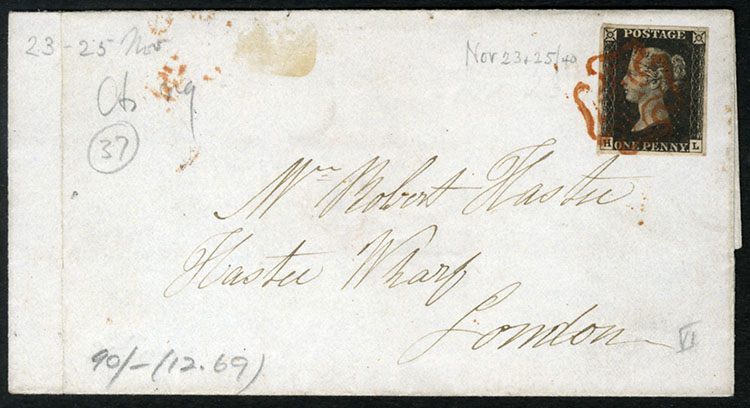 23-25 Nov
Nov 23+25/40
POSTAGE
H ONE PENNY L
37
Mr Robert Hastie
Hastie Wharf
London
90/-(12.69)
VI